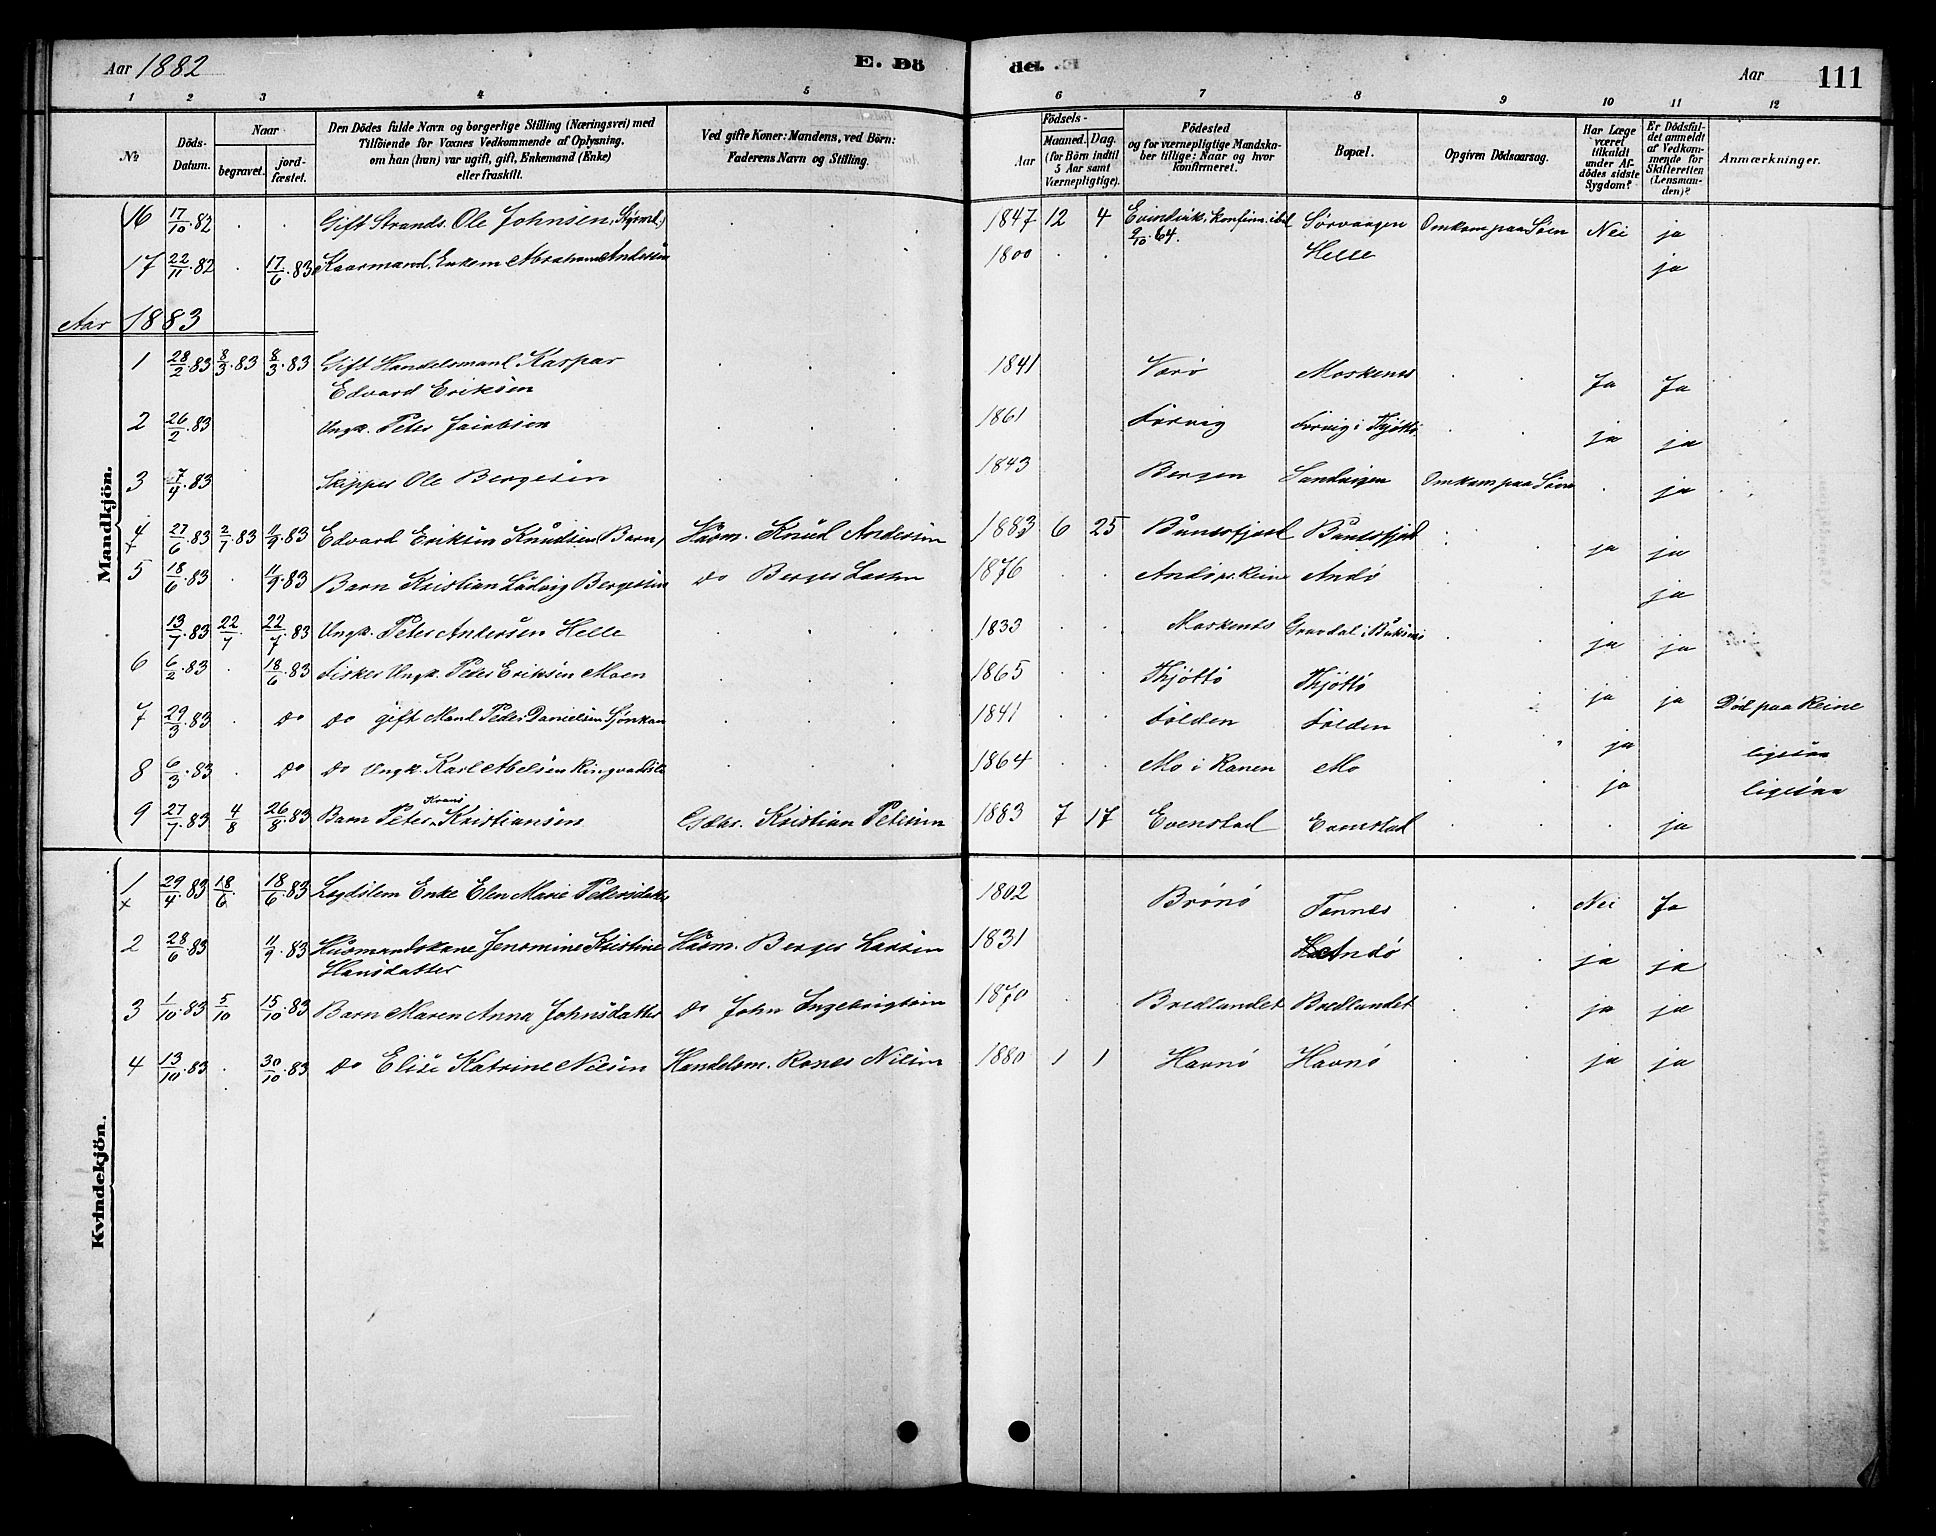 Aar 1882
E. Dö
de. E
Aar
111
1 2 3 4 5 6 7 8 9 10 11 12
№
Döds-Datum.
Naar
begravet.
jord-fæstet.
Den Dödes fulde Navn og borgerlige Stilling (Næringsvei) med
Tilföiende for Voxnes Vedkommende af Oplysning,
om han (hun) var ugift, gift, Enkemand (Enke)
eller fraskilt.
Ved gifte Koner: Mandens, ved Börn:
Faderens Navn og Stilling.
Födsels-
Aar
Maaned. Dag.
(for Börn indtil
5 Aar samt
Værnepligtige).
Födested
og for værnepligtige Mandska-
ber tillige: Naar og hvor
konfirmeret.
Bopæl.
Opgiven Dödsaarsag.
Har Læge
været
tilkaldt
under Af-
dödes sidste
Sygdom?
Er Dödsfal-
det anmeldt
af Vedkom-
mende for
Skifteretten
(Lensman-
den)?
Anmærkninger.
16 17/10.82 . . Gift Strands. Ole Johnsen, . 1847 12 4 Sörvaagen Omkom paa Söen Nei ja
9/10.64.
17 22/11.82 . 17/6.83 Kaarmand, Enkem Abraham Andersen 1800 . . Helle ja
Aar 1883
Mandkjön.
1 28/2.83 8/3.83 8/3.83 Gift Handelsmand Kaspar . 1841 Værö Moskenes . Ja Ja
Edvard Eriksen
2 26/2.83 Ungk. Peter Jacobsen . 1861 Forvig Forvig i Thjöttö . ja ja
3 7/4.83 Skipper Ole Bergesen . 1843 Bergen Sandvigen Omkom paa Söen . ja
4 27/6.83 2/7.83 11/9.83 Edvard Eriksen Knudsen (Barn) Husm. Knud Andersen 1883 6 25 Bunesfjord Bunesfjord . ja ja
x
5 18/6.83 . 11/9.83 Barn Kristian Ludvig Bergesen Do Berger Larsen 1876 . . Andö pr. Reine Andö ja
13/7.83 22/7. 22/7.83 Ungk. Peter Andersen Helle . 1833 . . Moskenes Gravdal i Buksnes . ja ja
6 6/2.83 . 18/6.83 Fisker Ungk. Peder Eriksen Moen . 1865 . . Thjöttö Thjöttö . ja ja Död paa Reine
7 29/3.83 . Do Do gift Mand Peder Danielsen . 1841 . . Folden Folden . ja ligesaa
8 6/3.83 . Do Do Ungk. Karl Abelsen . 1864 . . Mo i Ranen Mo . ja ligesaa
9 27/7.83 4/8 26/8.83 Barn Peter Krans Kristiansen Kristian Petersen 1883 7 17 Evenstad Evenstad . . ja
Kvindekjön.
1 29/4.83 18/6. 18/6.83 Lægdslem Enke Elen Marie Pedersdatter 1802 Brönö Tennes . Nei Ja
x
2 28/6.83 11/9.83 Husmandskone Jensmine Kristine Husm. Berger Larsen 1831 Andö . ja ja
Hansdatter
3 1/10.83 5/10 15/10.83 Barn Maren Anna Johnsdatter Do John Ingebrigtsen 1870 . . Bredlandet Bredlandet . ja ja
4 13/10.83 . 30/10.83 Do Elise Katrine Nilsen Handelsm. Nilsen 1880 1 1 Havnö Havnö . ja ja